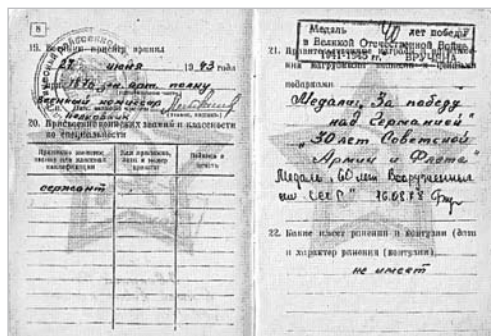 8
19. Военную присягу принял
27 июня 1943 года
при 1876 арт. полку
Военный комиссар
полковник
20. Присвоение воинских званий и классности
по специальности
Подпись и
печать
сержант
Медаль 40 лет победы
в Великой Отечественной Войне
1941-1945 гг. ВРУЧЕНА
21. Правительственные награды и
подарками
Медали: „За победу
над Германией"
„30 лет Советской
Армии и Флота"
Медаль „60 лет Вооруженных
сил СССР" 16.03.78
22. Какие имеет ранения и контузии (дата
и характер ранения (контузии)
не имеет